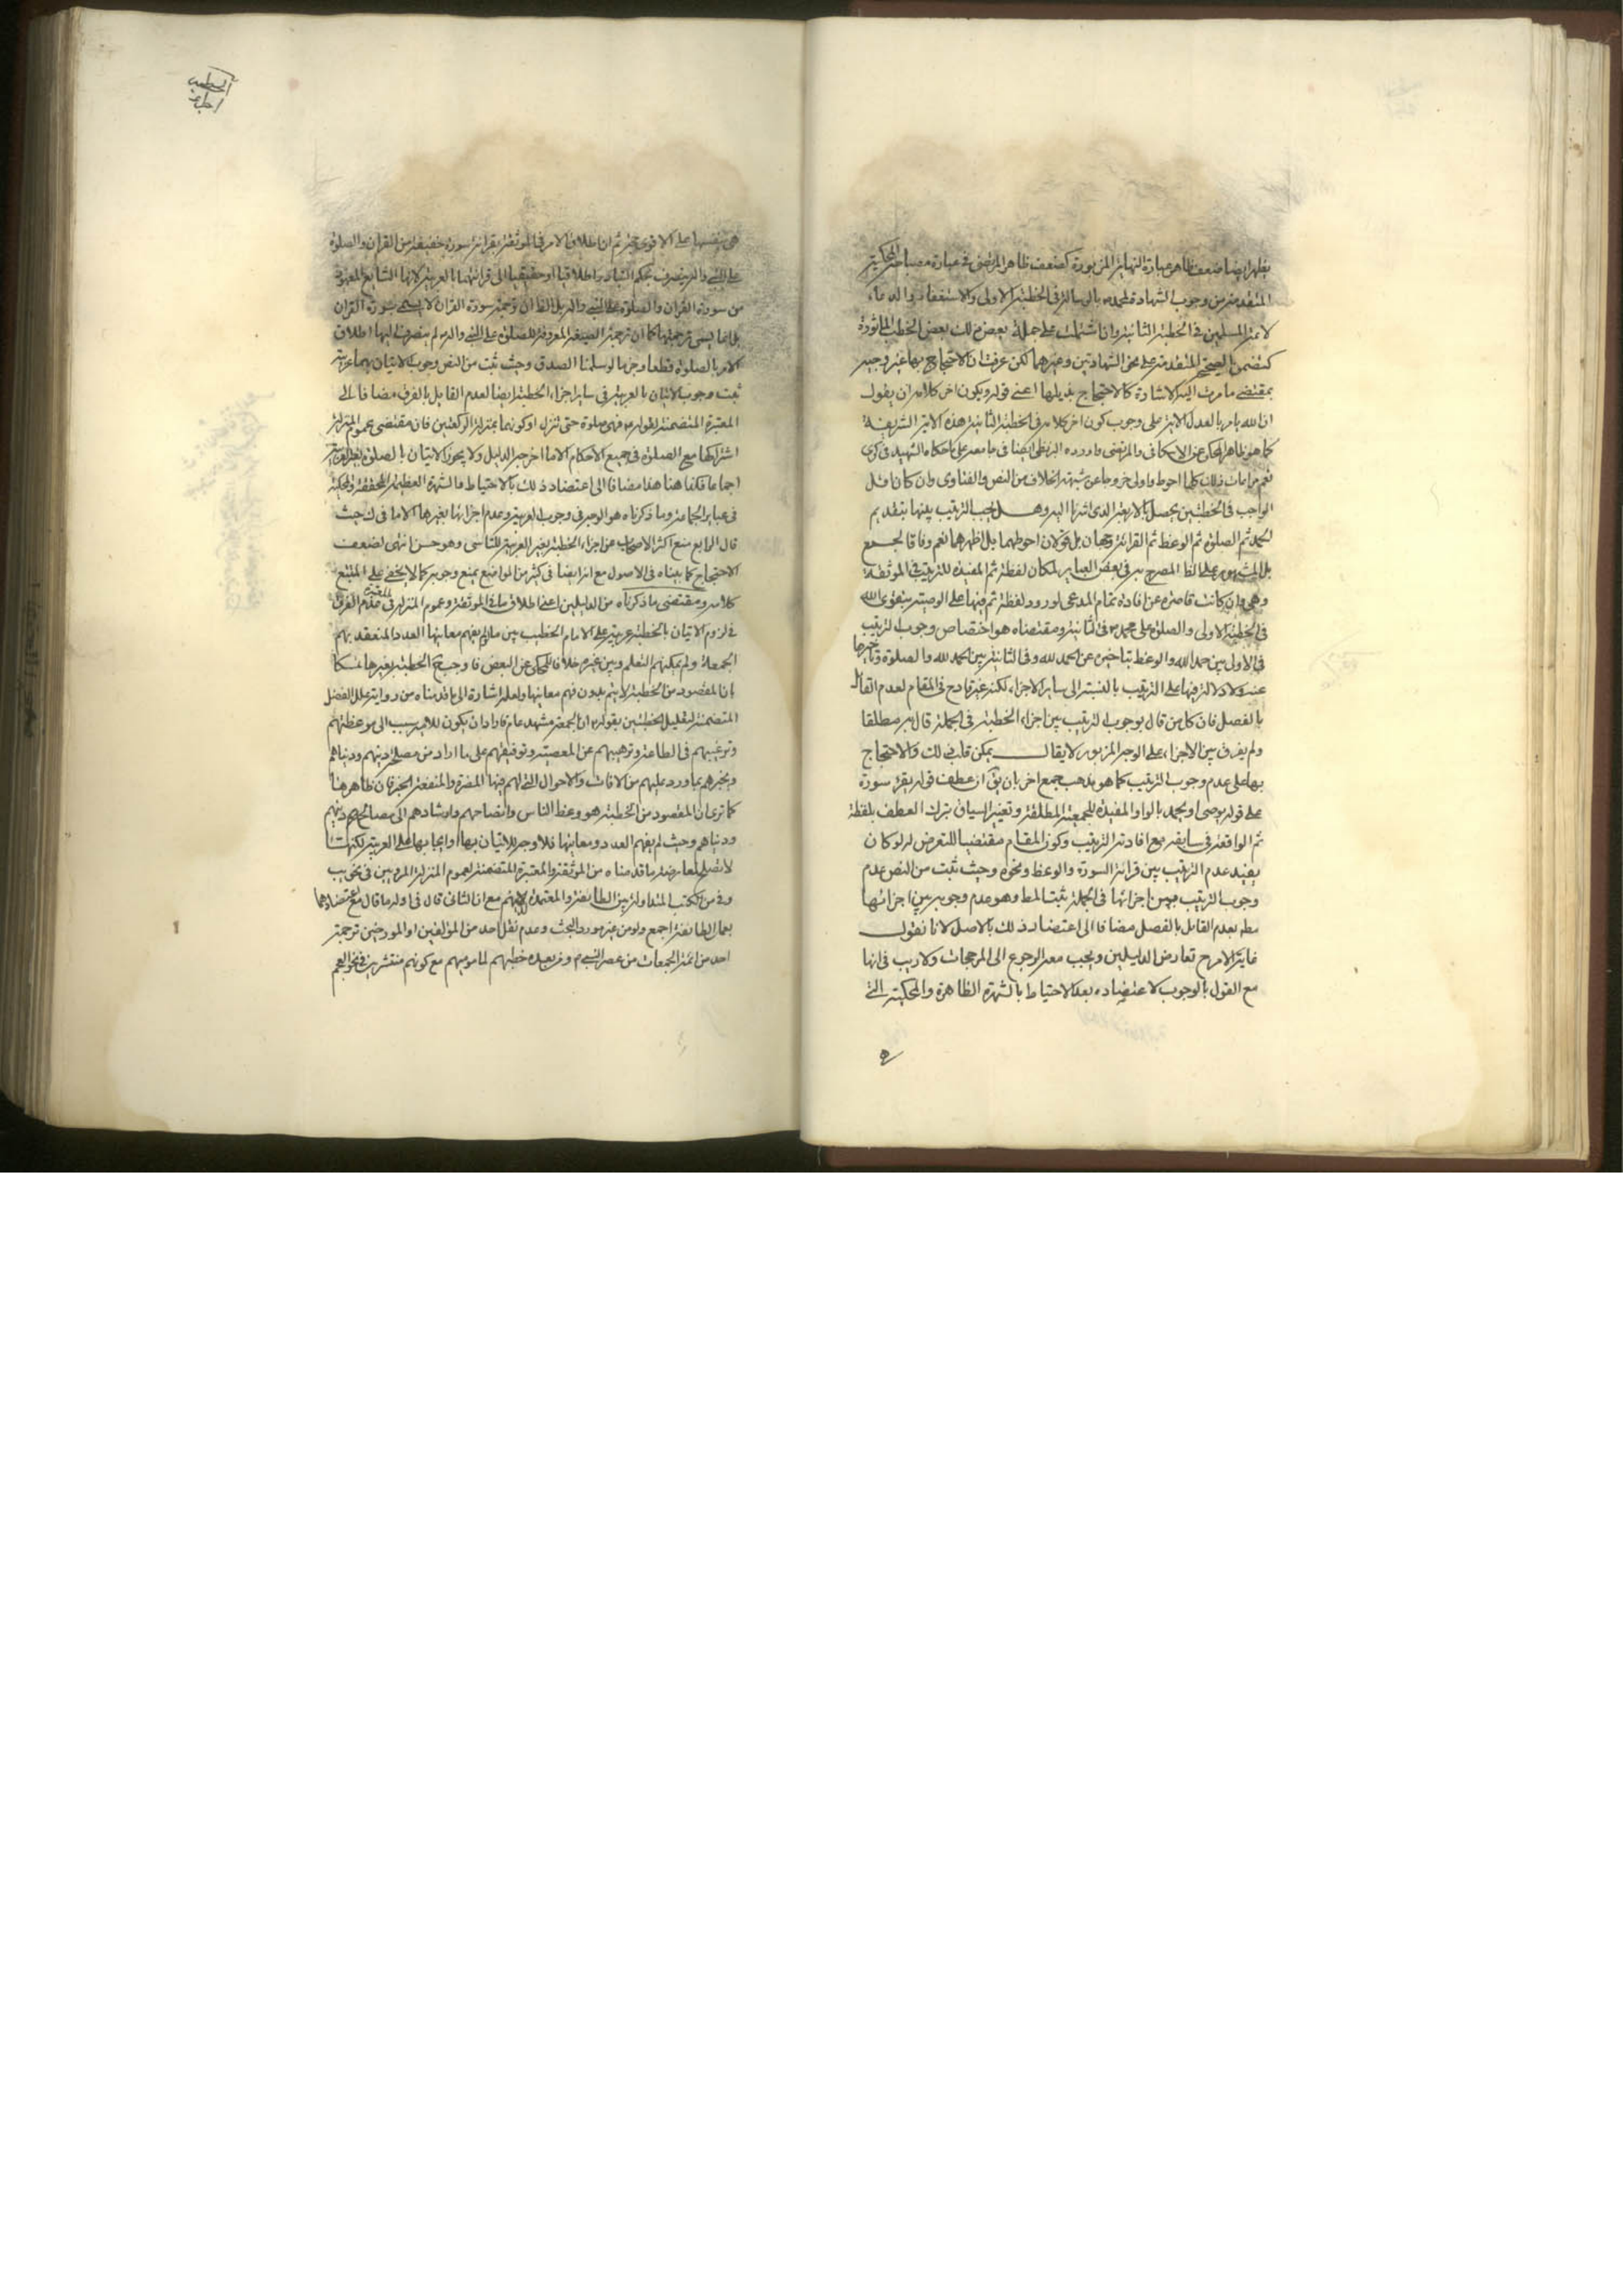 يظهر ايضا ضعف ظاهر عبارة النهاية المزبورة كضعف ظاهر المرتضى فى عبارة مصباحه المحكية
المتقدمة من وجوب الشهادة لمحمد ص بالرسالة فى الخطبة الاولى والاستغفار والدعاء
لائمة المسلمين فى الخطبة الثانية وان اشتملت على جملة بعض من تلك بعض الخطب الماثورة
كتضمن الصحيح المتقدمة على نحو الشهادتين وغيرهما لكن عرفت ان الاحتجاج بها غير وجيه
بمقتضى ما مرت اليه الاشارة كالاحتجاج بذيلها اعنى قوله ويكون اخر كلامه ان يقول
ان الله يامر بالعدل الاية على وجوب كون اخر كلامه فى الخطبة الثانية هذه الاية الشريفة
كما هو ظاهر المحكى عن الاسكافى والمرتضى واورده البزنطى ايضا فى جامعه على ما حكاه الشهيد فى كرى
نعم مراعات ذلك كلها احوط واولى خروجا عن شبهة الخلاف من النص والفتاوى وان كان اقل
الواجب فى الخطبتين يحصل بالاربعة الذى اشرنا اليه وهل يجب الترتيب بينها بتقديم
الحمد ثم الصلوة ثم الوعظ ثم القرائة وجهان بل قولان احوطهما بل اظهرهما نعم وفاقا لجمع
بل المشهور على الظ المصرح به فى بعض العباير لمكان لفظة ثم المفيدة للترتيب فى الموثقة
وهى وان كانت قاصرة عن افادة تمام المدعى لورود لفظة ثم فيها على الوصية بتقوى الله
فى الخطبة الاولى والصلوة على محمد ص فى الثانية ومقتضاه هو اختصاص وجوب الترتيب
فى الاولى بين حمد الله والوعظ بتاخيره عن الحمد لله وفى الثانية بين الحمد لله والصلوة وتاخيرها
عنه ولا دلالة فيها على الترتيب بالنسبة الى ساير الاجزاء لكنه غير قادح فى المقام لعدم القائل
بالفصل فان كل من قال بوجوب الترتيب بين اجزاء الخطبة فى الجملة قال به مطلقا
ولم يفرق بين الاجزاء على الوجه المزبور لا يقال يمكن قلب ذلك والاحتجاج
بها على عدم وجوب الترتيب كما هو مذهب جمع اخر بان يق ان عطف قوله يقرء سورة
على قوله يوصى او يحمد بالواو المفيدة للجمعية المطلقة وتغيير السياق بترك العطف بلفظة
ثم الواقعة فى سابقه مع افادته الترتيب وكون المقام مقتضيا للتعرض له لو كان
يفيد عدم الترتيب بين قرائة السورة والوعظ ونحوه وحيث ثبت من النص عدم
وجوب الترتيب بين اجزائها فى الجملة ثبت المط وهو عدم وجوبه بين اجزائها
مط بعدم القائل بالفصل مضافا الى اعتضاد ذلك بالاصل لانا نقول
غاية الامر ح تعارض الدليلين ويجب معه الرجوع الى المرجحات ولا ريب فى انها
مع القول بالوجوب لاعتضاده بعد الاحتياط بالشهرة الظاهرة والمحكية التى
هى بنفسها على الاقوى حجة ثم ان اطلاق الامر فى الموثقة بقرائة سورة خفيفة من القران والصلوة
على النبى واله ينصرف بحكم التبادر اطلاقيا او حقيقيا الى قرائتها بالعربية لانها الشايع المعهود
من سورة القران والصلوة على النبى واله بل الظ ان ترجمة سورة القران لا يسمى بسورة القران
بل انما يسمى ترجمتها كما ان ترجمة الصيغة المعروفة للصلوة على النبى واله لم ينصرف اليها اطلاق
الامر بالصلوة قطعا وجزما لو سلمنا الصدق وحيث ثبت من النص وجوب الاتيان بهما عربية
ثبت وجوب الاتيان بالعربية فى ساير اجزاء الخطبة ايضا لعدم القايل بالفرق مضافا الى
المعتبرة المتضمنة لقوله ص فهى صلوة حتى تنزل او كونهما بمنزلة الركعتين فان مقتضى عموم المنزلة
اشتراكها مع الصلوة فى جميع الاحكام الا ما اخرجه الدليل ولا يجوز الاتيان بالصلوة بغير العربية
اجماعا فكذا هنا هذا مضافا الى اعتضاد ذلك بالاحتياط والشهرة العظيمة المحققة والمحكية
فى عباير الجماعة وما ذكرناه هو الوجه فى وجوب العربية وعدم اجزائها بغيرها لا ما فى ك حيث
قال الرابع منع اكثر الاصحاب عن اجزاء الخطبة بغير العربية للتاسى وهو حسن انتهى لضعف
الاحتجاج كما بيناه فى الاصول مع انه ايضا فى كثير من المواضع يمنع وجوبه كما لا يخفى على المتتبع
كلامه ومقتضى ما ذكرناه من الدليلين اعنى اطلاق ما فى الموثقة وعموم المنزلة فى المعتبرة عدم الفرق
فى لزوم الاتيان بالخطبة عربية على الامام الخطيب بين ما لو لم يفهم معانيها العدد المنعقد بهم
الجمعة ولم يمكنهم التعلم وبين غيره خلافا للمحكى عن البعض فاوجب ح الخطبة بغيرها تمسكا
بان المقصود من الخطبة لا يتم بدون فهم معانيها ولعله اشارة الى ما قدمناه من رواية علل الفضل
المتضمنة لتعليل الخطبتين بقوله ع ان الجمعة مشهد عام فاراد ان يكون للامير سبب الى موعظتهم
وترغيبهم فى الطاعة وترهيبهم عن المعصية وتوفيقهم على ما اراد من مصلحة دينهم ودنياهم
ويخبرهم بما ورد عليهم من الافات والاحوال التى لهم فيها المضرة والمنفعة الخبر فان ظاهرها
كما ترى ان المقصود من الخطبة هو وعظ الناس وانصاحهم وارشادهم الى مصالح دينهم
ودنياهم وحيث لم يفهم العدد معانيها فلا وجه للاتيان بها وايجابها على العربية لكنها
لا تصلح لمعارضة ما قدمناه من الموثقة والمعتبرة المتضمنة لعموم المنزلة المرويين فى
وفى من الكتب المتداولة بين الطايفة والمعتمدة لديهم مع ان الثانى قال فى اوله ما قال مع اعتضادهما
بعمل الطايفة اجمع ولو من غير مورد البحث وعدم نقل احد من المؤلفين او المورخين ترجمة
احد من ائمة الجمعات من عصر النبى ص وغيره بعده خطبهم لمامومهم مع كونهم منتشرين فى نحو العجم